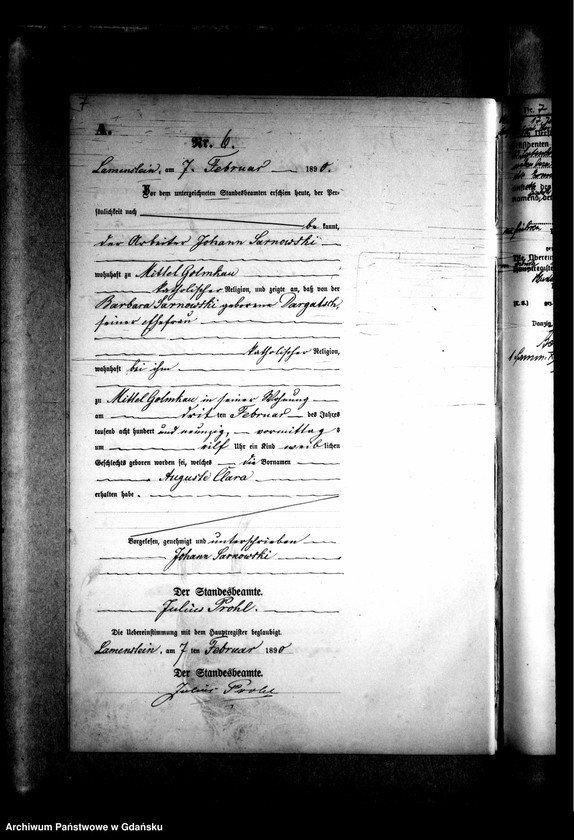 7
A.
Nr. 6.
Lamenstein, am 7. Februar 1890.
Vor dem unterzeichneten Standesbeamten erschien heute, der Per-
sönlichkeit nach
be kannt,
der Arbeiter Johann Sarnowski
wohnhaft zu Mittel Golmkau
katholischer Religion, und zeigte an, daß von der
Barbara Sarnowski geborene Dargatsch,
seiner Ehefrau
katholischer Religion,
wohnhaft bei ihm
zu Mittel Golmkau in seiner Wohnung
am drit ten Februar des Jahres
tausend acht hundert und neunzig, vormittag s
um eilf Uhr ein Kind weib lichen
Geschlechts geboren worden sei, welches die Vornamen
Auguste Clara
erhalten habe.
Vorgelesen, genehmigt und unterschrieben
Johann Sarnowski
Der Standesbeamte.
Julius Prohl.
Die Uebereinstimmung mit dem Hauptregister beglaubigt.
Lamenstein, am 7 ten Februar 1890
Der Standesbeamte.
Julius Prohl
Nr. 7
Danzig,
Archiwum Państwowe w Gdańsku